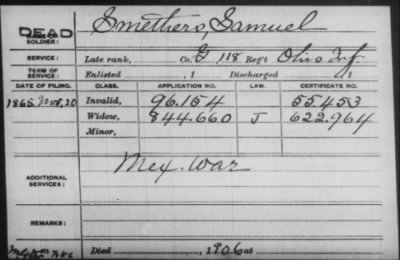 DEAD
SOLDIER: Smethers, Samuel
SERVICE: Late rank, Co. G 118 Reg't Ohio Inf.
TERM OF SERVICE: Enlisted , 1 Discharged , 1
DATE OF FILING. CLASS. APPLICATION NO. LAW. CERTIFICATE NO.
1865 Nov, 20 Invalid, 96.154 55.453
Widow, 844.660 J 622.964
Minor,
ADDITIONAL SERVICES: Mex. War
REMARKS:
Died , 1906 at